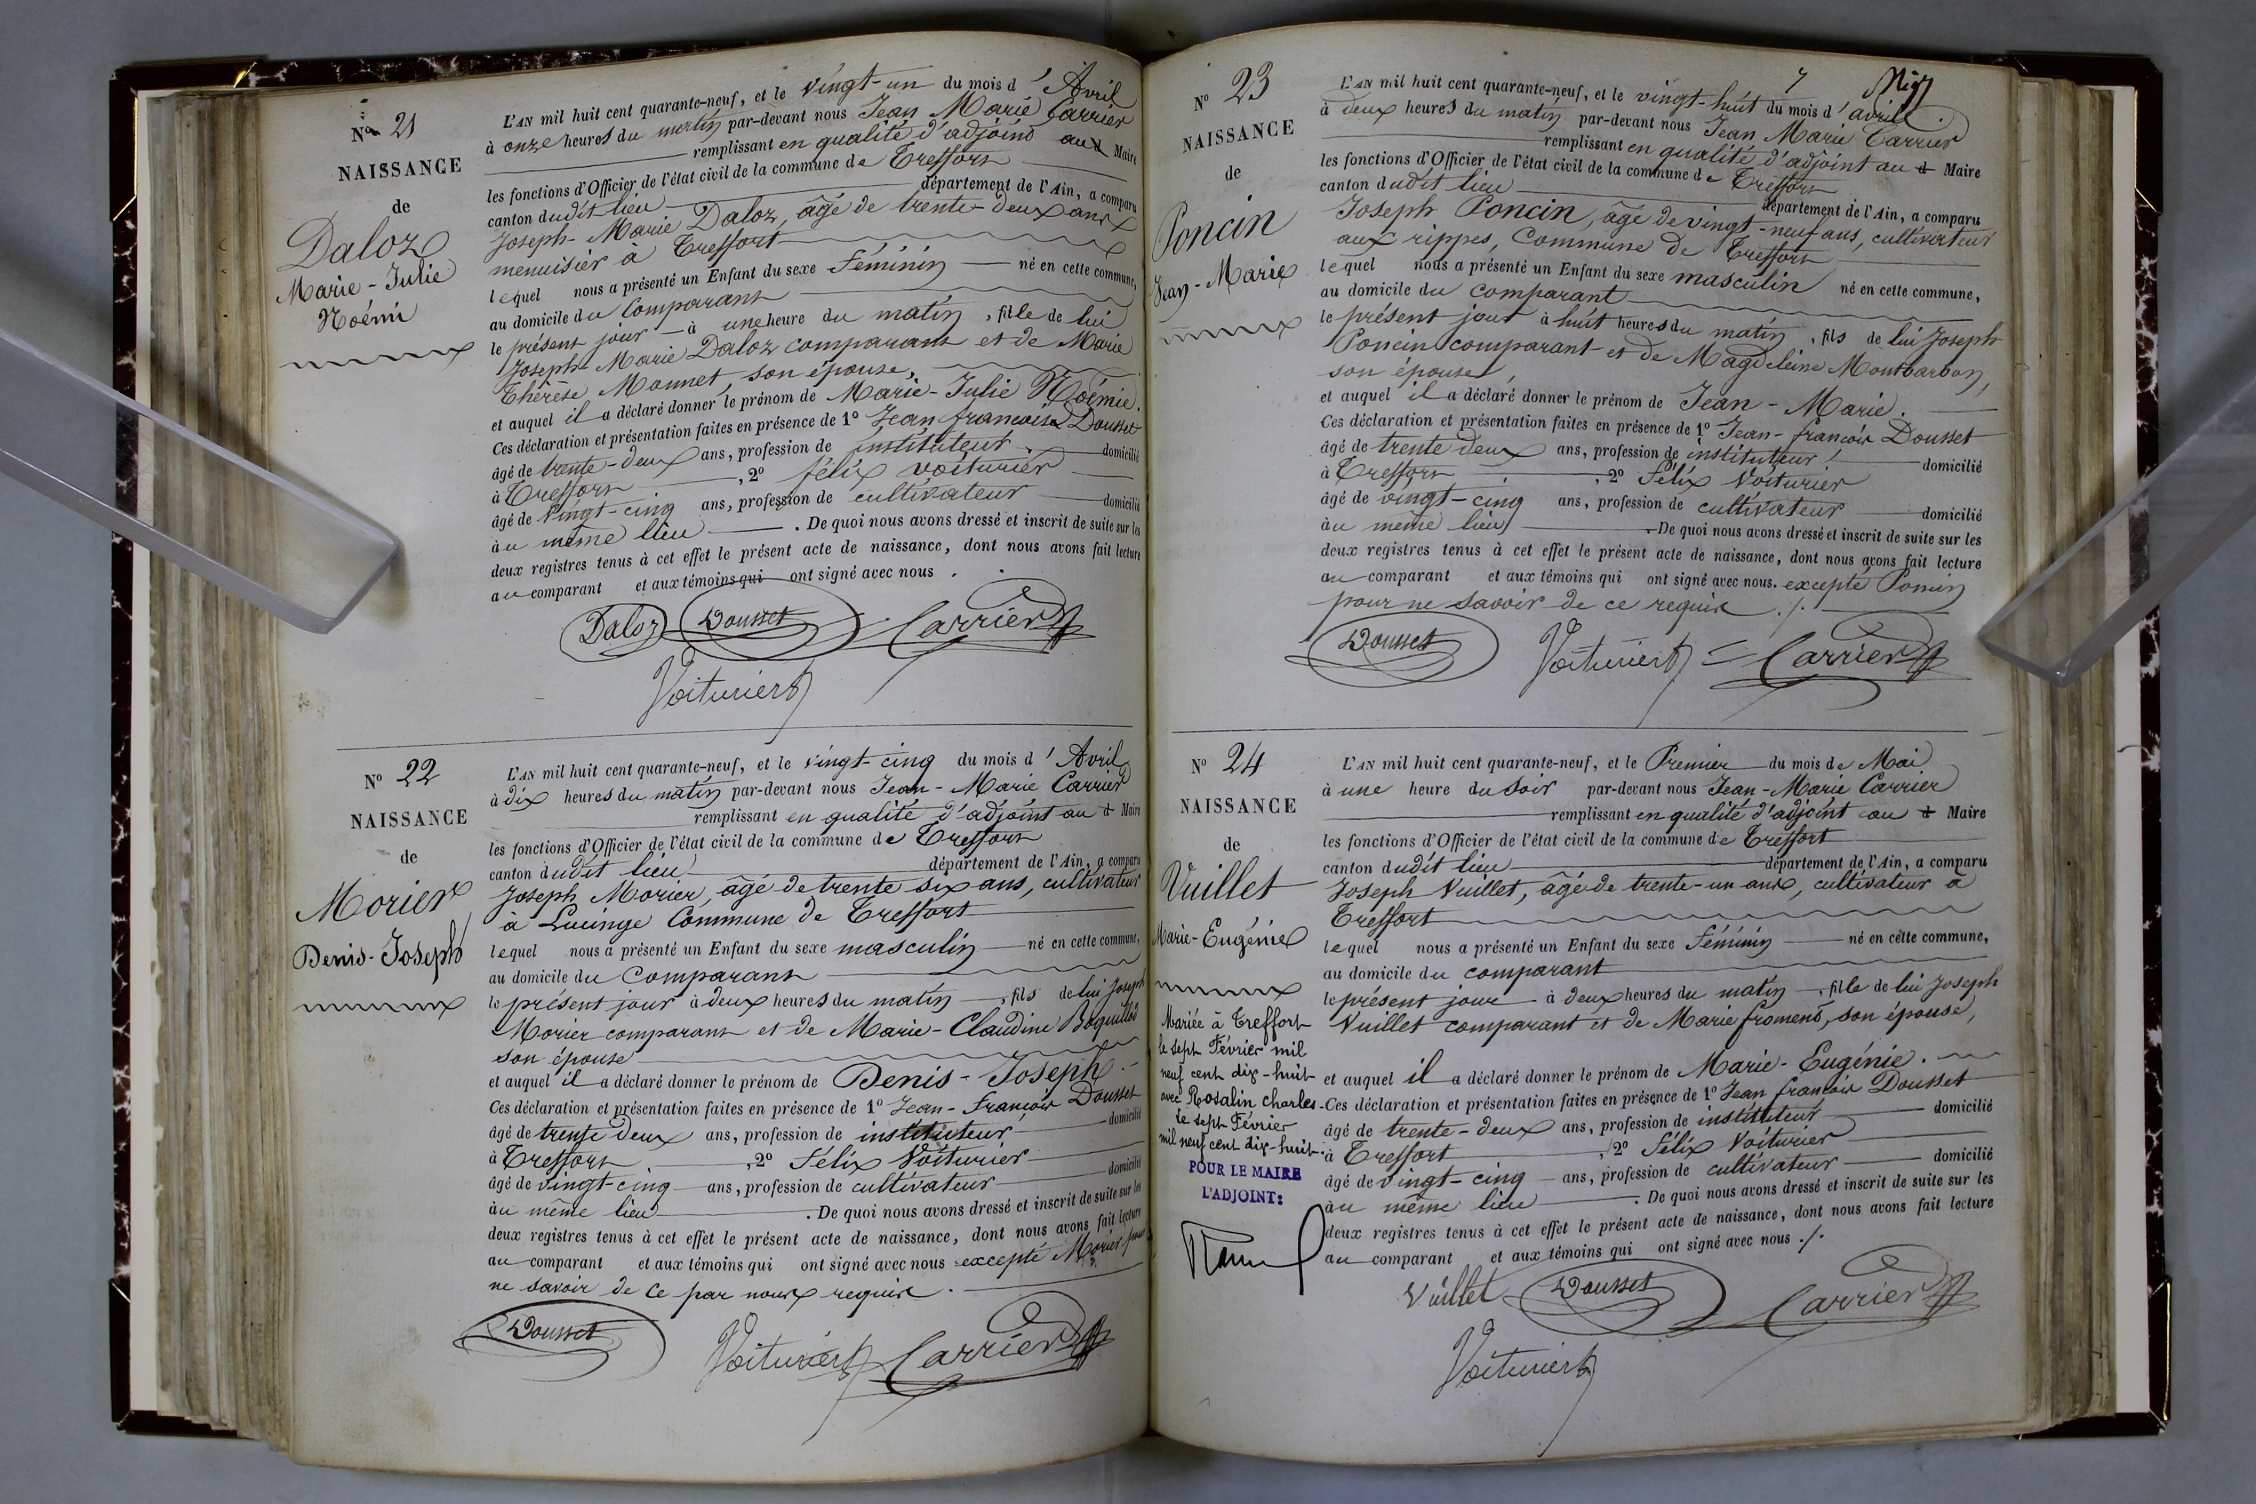 N° 21
NAISSANCE
de
Daloz
Marie-Julie
Noémi
L'AN mil huit cent quarante-neuf, et le vingt-un du mois d'Avril
à onze heures du matin par-devant nous Jean Marie Carrier
remplissant en qualité d'adjoint au Maire
les fonctions d'Officier de l'état civil de la commune de Treffort
canton dudit lieu département de l'Ain, a comparu
Joseph-Marie Daloz, âgé de trente-deux ans
menuisier à Treffort
lequel nous a présenté un Enfant du sexe féminin né en cette commune,
au domicile du Comparant
le présent jour à une heure du matin, fille de lui
Joseph-Marie Daloz comparant et de Marie
Thérèse Monnet, son épouse,
et auquel il a déclaré donner le prénom de Marie-Julie Noémie.
Ces déclaration et présentation faites en présence de 1° Jean françois Dousset
âgé de trente-deux ans, profession de instituteur. domicilié
à Treffort, 2° félix voiturier
âgé de vingt-cinq ans, profession de cultivateur domicilié
au même lieu. De quoi nous avons dressé et inscrit de suite sur les
deux registres tenus à cet effet le présent acte de naissance, dont nous avons fait lecture
au comparant et aux témoins qui ont signé avec nous.
Daloz Dousset Carrier
Voiturier
N° 22
NAISSANCE
de
Morier
Denis-Joseph
L'AN mil huit cent quarante-neuf, et le vingt-cinq du mois d'Avril
à dix heures du matin par-devant nous Jean-Marie Carrier
remplissant en qualité d'adjoint au Maire
les fonctions d'Officier de l'état civil de la commune de Treffort
canton dudit lieu département de l'Ain, a comparu
Joseph Morier, âgé de trente six ans, cultivateur
à Lucinge Commune de Treffort
lequel nous a présenté un Enfant du sexe masculin né en cette commune,
au domicile du Comparant
le présent jour à deux heures du matin, fils de lui Joseph
Morier comparant et de Marie-Claudine
son épouse
et auquel il a déclaré donner le prénom de Denis-Joseph.
Ces déclaration et présentation faites en présence de 1° Jean-François Dousset
âgé de trente deux ans, profession de instituteur domicilié
à Treffort, 2° Félix Voiturier
âgé de vingt-cinq ans, profession de cultivateur domicilié
au même lieu. De quoi nous avons dressé et inscrit de suite sur les
deux registres tenus à cet effet le présent acte de naissance, dont nous avons fait lecture
au comparant et aux témoins qui ont signé avec nous excepté Morier pour
ne savoir de ce par nous requis.
Dousset Voiturier Carrier
7
N° 23
NAISSANCE
de
Poncin
Jean-Marie
L'AN mil huit cent quarante-neuf, et le vingt-huit du mois d'avril
à deux heures du matin par-devant nous Jean Marie Carrier
remplissant en qualité d'adjoint au Maire
les fonctions d'Officier de l'état civil de la commune de Treffort
canton dudit lieu département de l'Ain, a comparu
Joseph Poncin, âgé de vingt-neuf ans, cultivateur
aux rippes, Commune de Treffort
lequel nous a présenté un Enfant du sexe masculin né en cette commune,
au domicile du comparant
le présent jour à huit heures du matin, fils de lui Joseph
Poncin comparant et de Magdeleine Montbarbon,
son épouse,
et auquel il a déclaré donner le prénom de Jean-Marie.
Ces déclaration et présentation faites en présence de 1° Jean-françois Dousset
âgé de trente deux ans, profession de instituteur domicilié
à Treffort, 2° Félix Voiturier
âgé de vingt-cinq ans, profession de cultivateur domicilié
au même lieu. De quoi nous avons dressé et inscrit de suite sur les
deux registres tenus à cet effet le présent acte de naissance, dont nous avons fait lecture
au comparant et aux témoins qui ont signé avec nous. excepté Poncin
pour ne savoir de ce requis ./.
Dousset Voiturier Carrier
N° 24
NAISSANCE
de
Vuillet
Marie-Eugénie
Mariée à Treffort
le sept Février mil
neuf cent dix-huit
avec Rosalin Charles.
Le sept Février
mil neuf cent dix-huit.
POUR LE MAIRE
L'ADJOINT:
L'AN mil huit cent quarante-neuf, et le Premier du mois de Mai
à une heure du soir par-devant nous Jean-Marie Carrier
remplissant en qualité d'adjoint au Maire
les fonctions d'Officier de l'état civil de la commune de Treffort
canton dudit lieu département de l'Ain, a comparu
Joseph Vuillet, âgé de trente-un ans, cultivateur à
Treffort
lequel nous a présenté un Enfant du sexe féminin né en cette commune,
au domicile du comparant
le présent jour à deux heures du matin, fille de lui Joseph
Vuillet comparant et de Marie froment, son épouse,
et auquel il a déclaré donner le prénom de Marie-Eugénie.
Ces déclaration et présentation faites en présence de 1° Jean françois Dousset
âgé de trente-deux ans, profession de instituteur domicilié
à Treffort, 2° Félix Voiturier
âgé de vingt-cinq ans, profession de cultivateur domicilié
au même lieu. De quoi nous avons dressé et inscrit de suite sur les
deux registres tenus à cet effet le présent acte de naissance, dont nous avons fait lecture
au comparant et aux témoins qui ont signé avec nous ./.
Vuillet Dousset Carrier
Voiturier